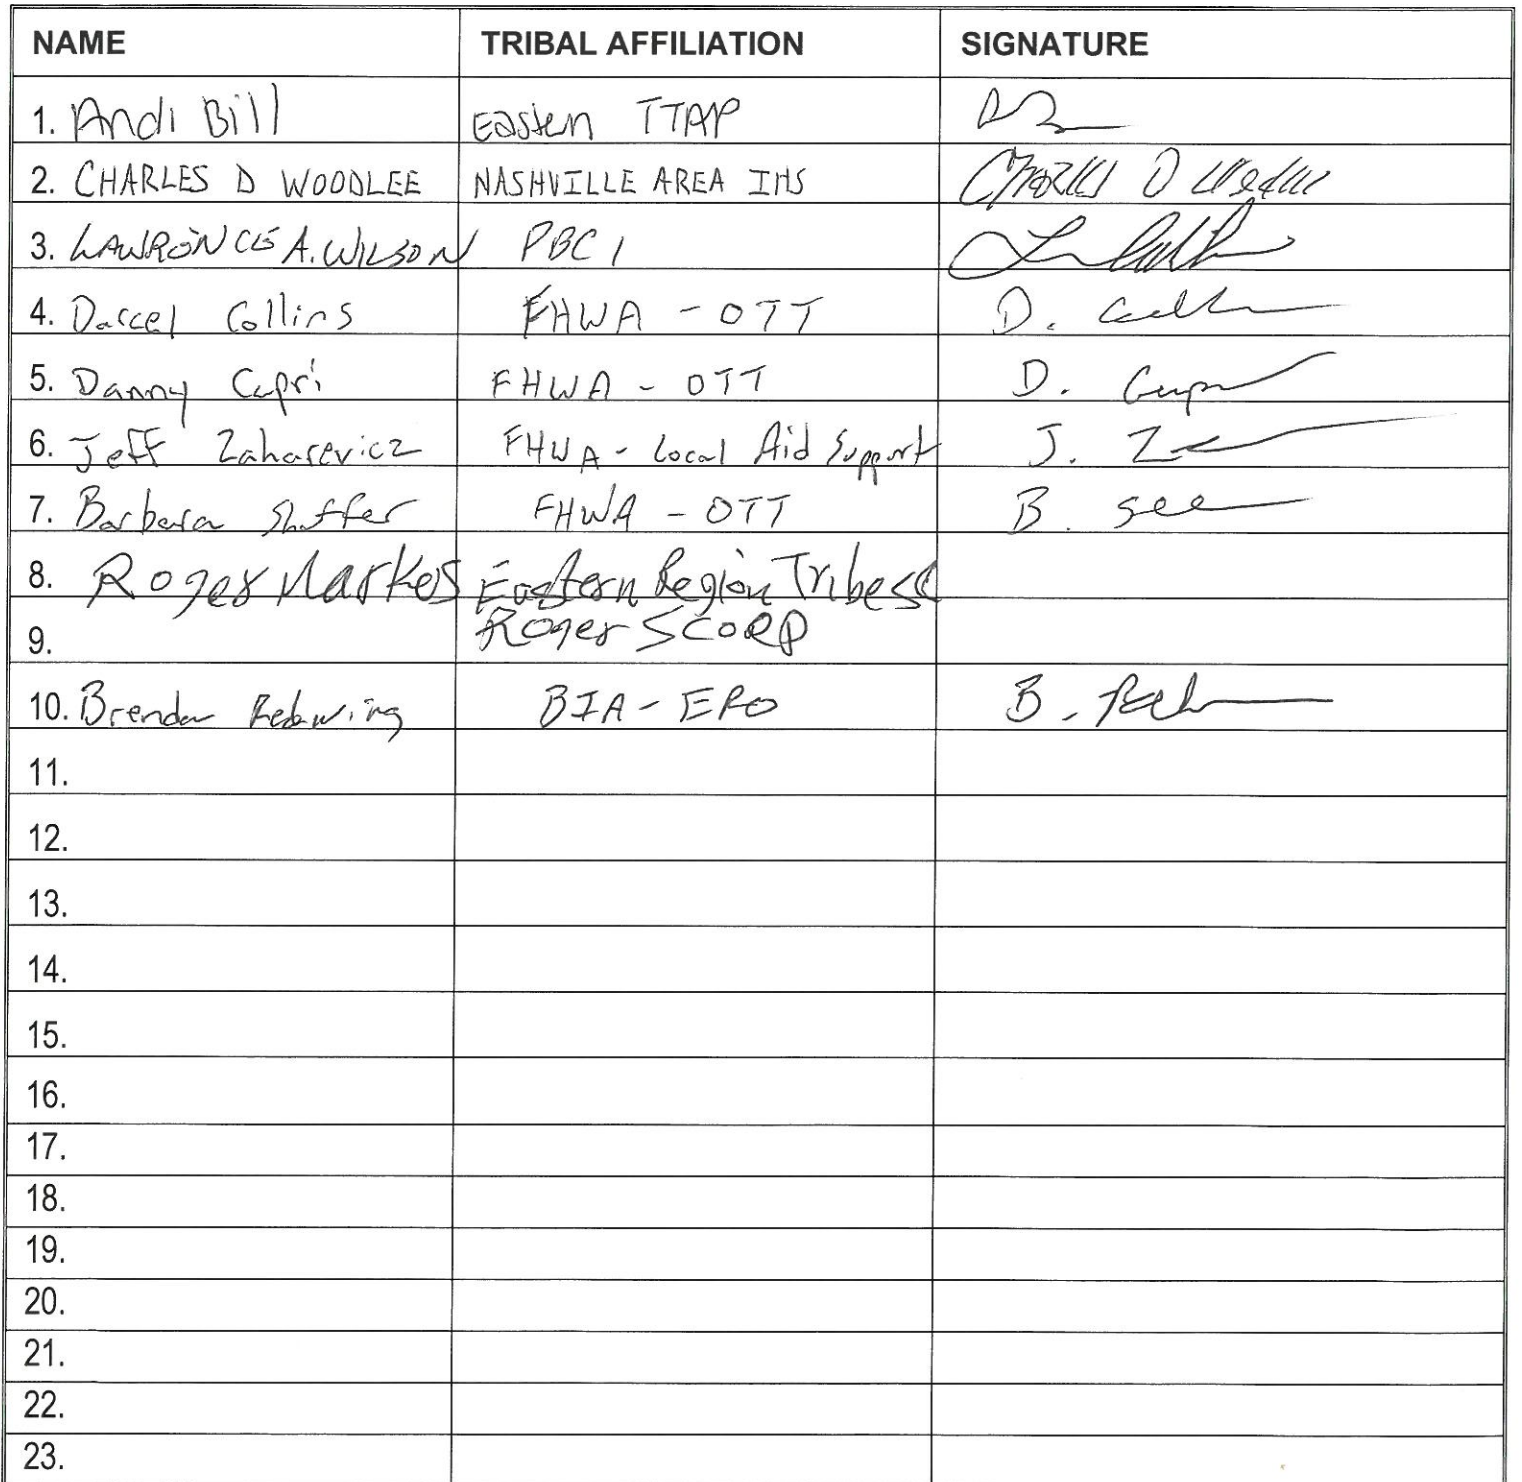 NAME TRIBAL AFFILIATION SIGNATURE
1. Andi Bill Eastern TTAP
2. CHARLES D WOODLEE NASHVILLE AREA IHS Charles D
3. LAWRENCE A. WILSON PBCI
4. Darcel Collins FHWA - OTT D.
5. Danny Capri FHWA - OTT D.
6. Jeff Zaharevicz FHWA - Local Aid Support J.
7. Barbara Shaffer FHWA - OTT B.
8. Roger Markos Eastern Region Tribes
9. Roger SCORP
10. Brenda Redwing BIA - ERO B.
11.
12.
13.
14.
15.
16.
17.
18.
19.
20.
21.
22.
23.